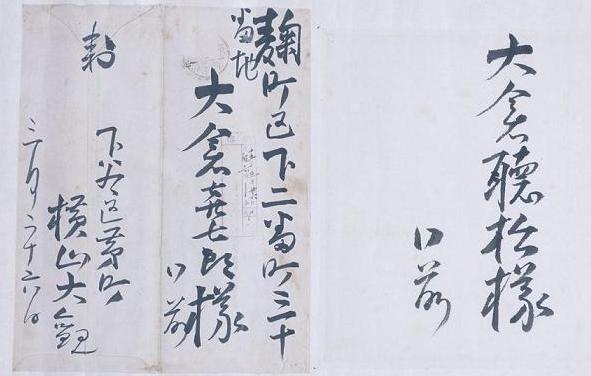 大倉聴松様
麹町区下二番町三十
当地
大倉喜七郎様
封
下谷区茅町
横山大観
三月二十六日